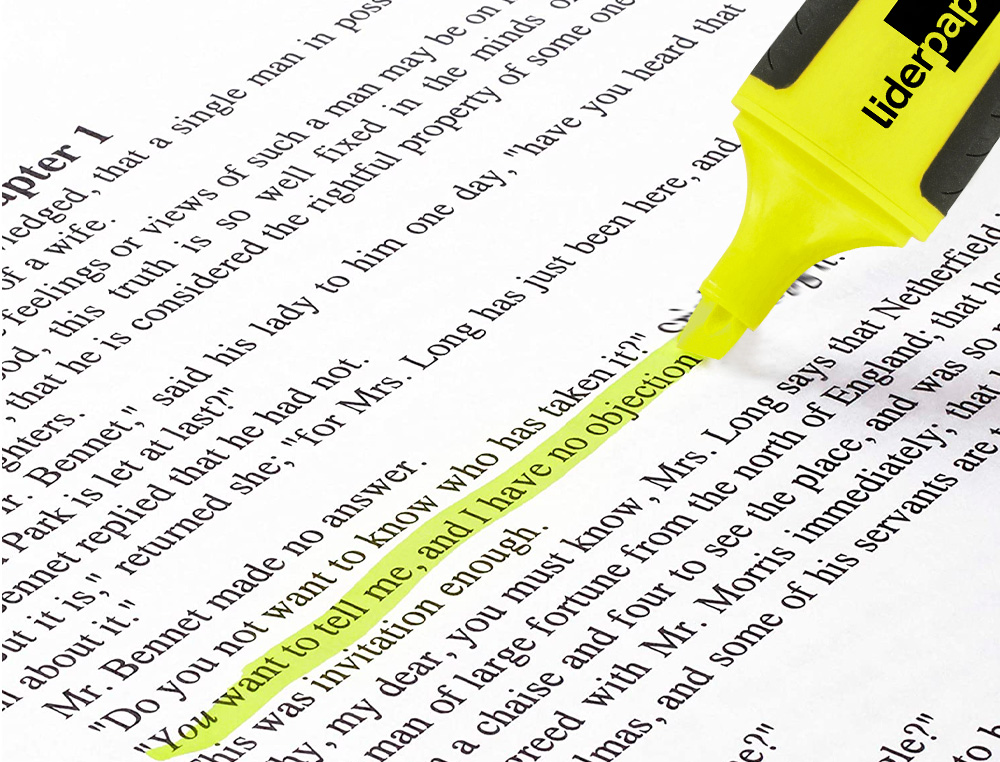 liderpap
apter 1
ledged, that a single man in poss
of a wife.
feelings or views of such a man may be on
ood, this truth is so well fixed in the minds of
, that he is considered the rightful property of some one
ghters.
r. Bennet," said his lady to him one day, "have you heard that
Park is let at last?"
ennet replied that he had not.
ut it is," returned she; "for Mrs. Long has just been here, and
about it."
Mr. Bennet made no answer.
"Do you not want to know who has taken it?"
"You want to tell me, and I have no objection
his was invitation enough.
hy, my dear, you must know, Mrs. Long says that Netherfield
man of large fortune from the north of England; that h
n a chaise and four to see the place, and was so
greed with Mr. Morris immediately; that
lmas, and some of his servants are t
e?"
gle?"
to b